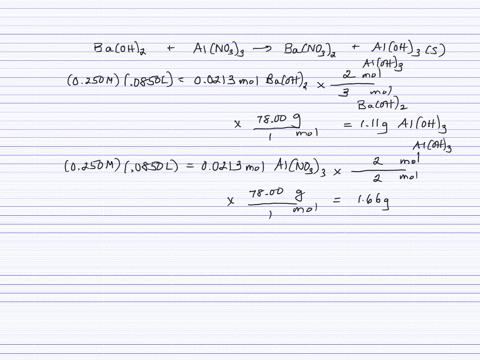 Ba(OH)₂ + Al(NO₃)₃ → Ba(NO₃)₂ + Al(OH)₃ (s)
Al(OH)₃
(0.250M)(.0850L) = 0.0213 mol Ba(OH)₂ × 2 mol / 3 mol
Ba(OH)₂
× 78.00 g / 1 mol = 1.11g Al(OH)₃
Al(OH)₃
(0.250M)(.0850L) = 0.0213 mol Al(NO₃)₃ × 2 mol / 2 mol
× 78.00 g / 1 mol = 1.66g